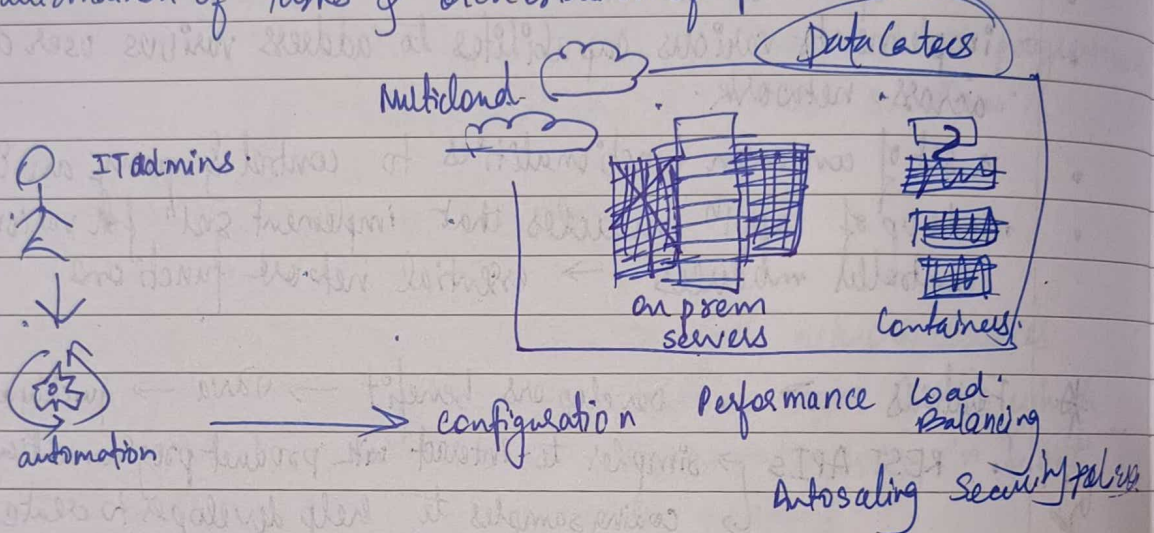 Data Caters
Multicloud
IT admins.
on prem
servers
Containers.
automation
configuration
Performance
Load
Balancing
Autosaling
Security